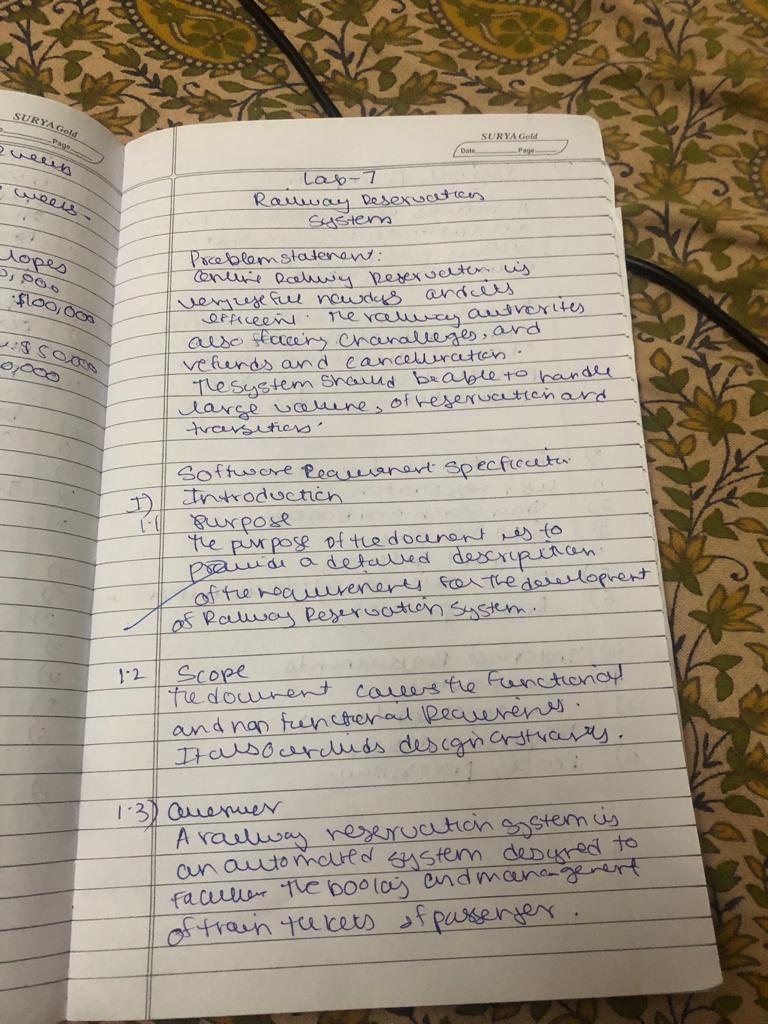 SURYA Gold
Page
weeks
weeks-
lopes
0,000
$100,000
$50,000
0,000
SURYA Gold
Date Page
Lab-7
Railway Reservation
System
Problem statement:
Online Railway Reservation is
very useful and is
efficient. The railway authorites
also facing challenges, and
refunds and cancelluration.
The system should be able to handle
large volume, of reservation and
transitions.
Software Requirement Specficatu.
I) Introduction
1.1 Purpose
The purpose of the document is to
provide a detailed description
of the requirements for the development
of Railway Reservation System.
1.2 Scope
The document covers the functional
and non functional Requirements.
It also design
1.3) Overview
A railway reservation system is
an automated system designed to
the booking and management
of train tickets of passenger.